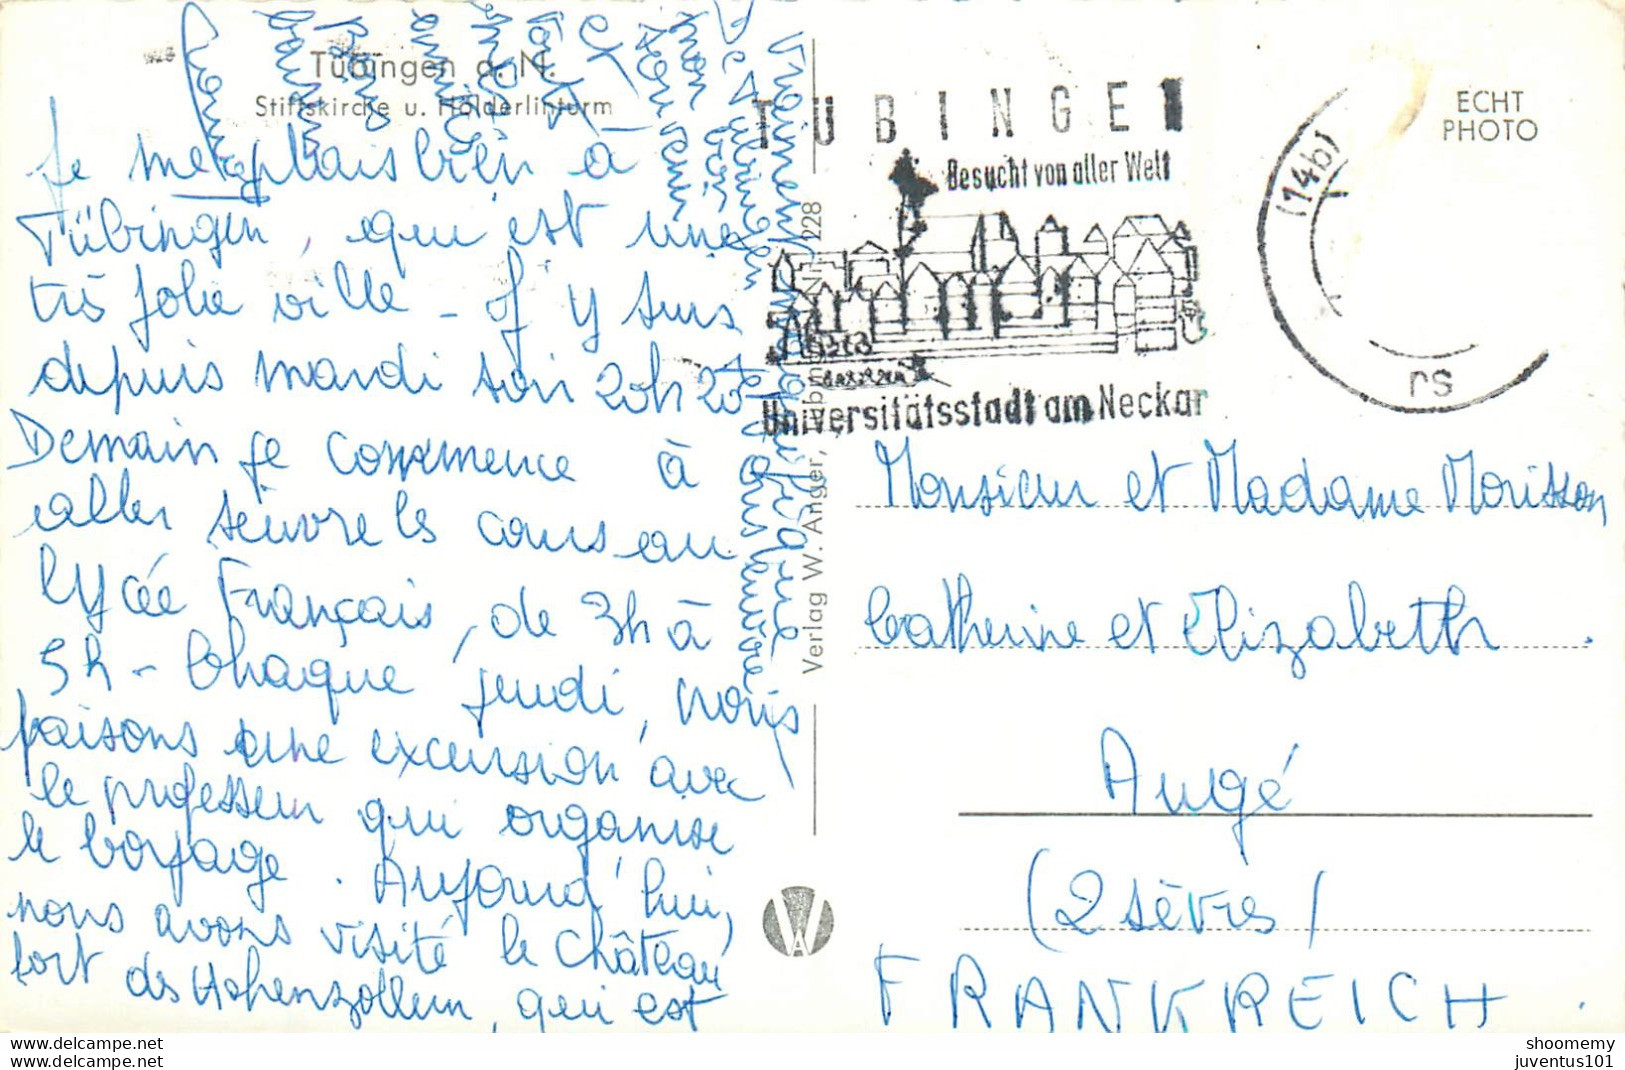 Tübingen a. N.
Stiftskirche u. Hölderlinturm
Je me plais bien à
Tübingen, qui est une
très jolie ville - J'y suis
depuis mardi soir 20h20
Demain je commence à
aller suivre les cours au
lycée Français, de 3h à
5h - Chaque jeudi, nous
faisons une excursion avec
le professeur qui organise
le voyage. Aujourd'hui,
nous avons visité le Château
fort des Hohenzollern, qui est
vraiment magnifique
De Tübingen je vous envoie
mon bon
souvenir
et
tout
amitiés
baisers
Verlag W. Anger, 228
WA
TÜBINGEN
Besucht von aller Welt
Universitätsstadt am Neckar
(14b)
ECHT
PHOTO
Monsieur et Madame Morisson
Catherine et Elizabeth.
Augé
(2 Sèvres)
FRANKREICH.
bonjour.net
bonjour.net
shoomemy
juventus101